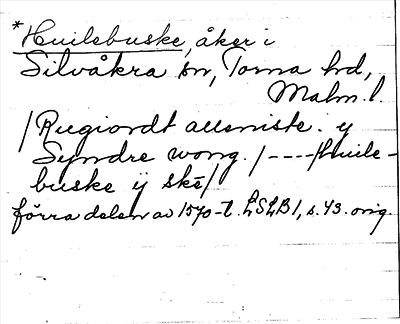 *Huilebuske, åker i
Silvåkra sn, Torna hd,
Malm. l.
/Rugiordt allsniste. y
Syndre wong. /----/Huile-
buske ij skē/
förra delen av 1570-t. LSLB 1, s. 43. orig.